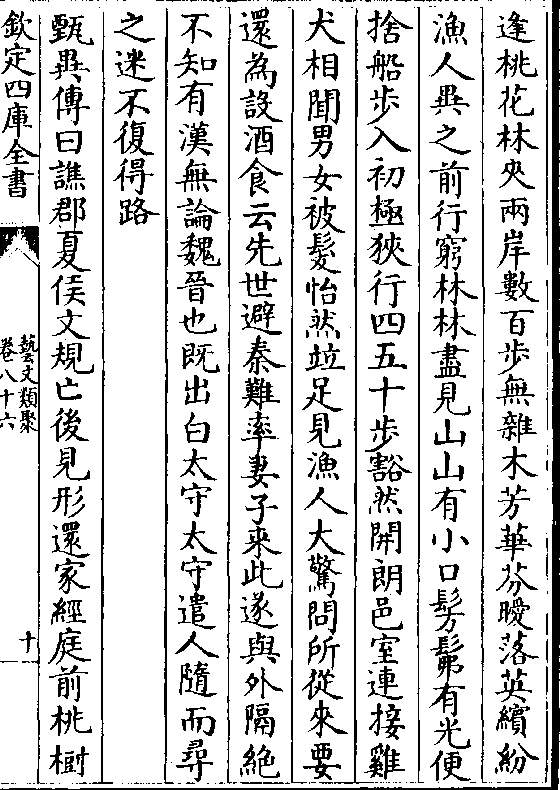 逢桃花林夾兩岸數百步無雜木芳華芬曖落英繽紛
漁人異之前行窮林林盡見山山有小口髣髴有光便
捨船步入初極狹行四五十步豁然開朗邑室連接雞
犬相聞男女被髮怡然竝足見漁人大驚問所從來要
還為設酒食云先世避秦難率妻子來此遂與外隔絶
不知有漢無論魏晉也既出白太守太守遣人隨而尋
之迷不復得路
甄異傳曰譙郡夏侯文規亡後見形還家經庭前桃樹
欽定四庫全書
藝文類聚
卷八十六
十